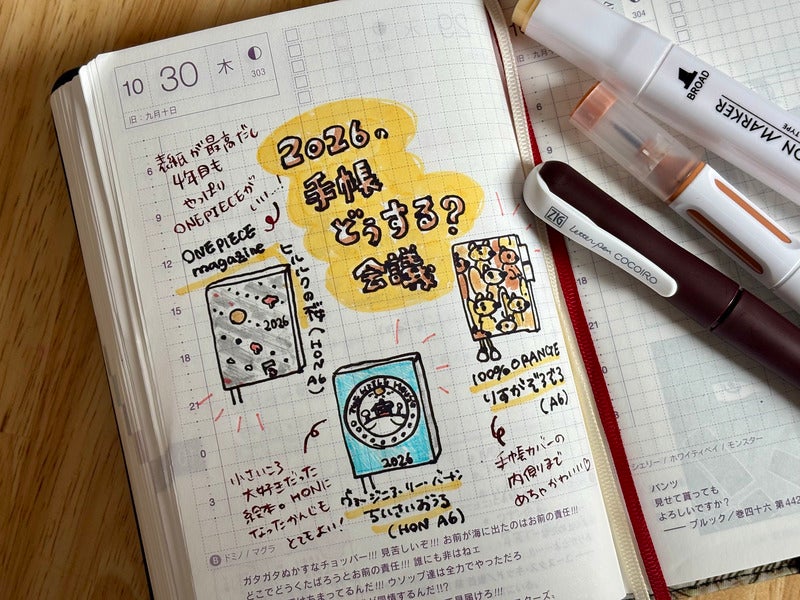 10 30 木
303
旧：九月十日
2026の
手帳
どうする？
会議
表紙が最高だし
4年目も
やっぱり
ONEPIECEが
いい…
ONE PIECE
magazine
ヒルルクの桜(HON A6)
2026
THE LITTLE HOUSE
2026
小さいころ
大好きだった
絵本。HONに
なったかんじも
とてもよい！
ヴァージニア・リー・バートン
ちいさいおうち
(HON A6)
100% ORANGE
りすがぞろぞろ
(A6)
手帳カバーの
内側まで
めちゃかわいい♡
6
9
12
15
18
21
0
3
ドミノ / マグラ
ガタガタぬかすなチョッパー!!! 見苦しいぞ!!! お前が海に出たのはお前の責任!!!
どこでどうくたばろうとお前の責任!!! 誰にも非はねェ
ウソップ達は全力でやっただろ
304
旧：九月十
シェリー / ホワイティベイ / モンスター
パンツ
見せて貰っても
よろしいですか？
── ブルック／巻四十六 第442
BROAD
ON MARKER
TYPE
ZIG Letterpen COCOIRO